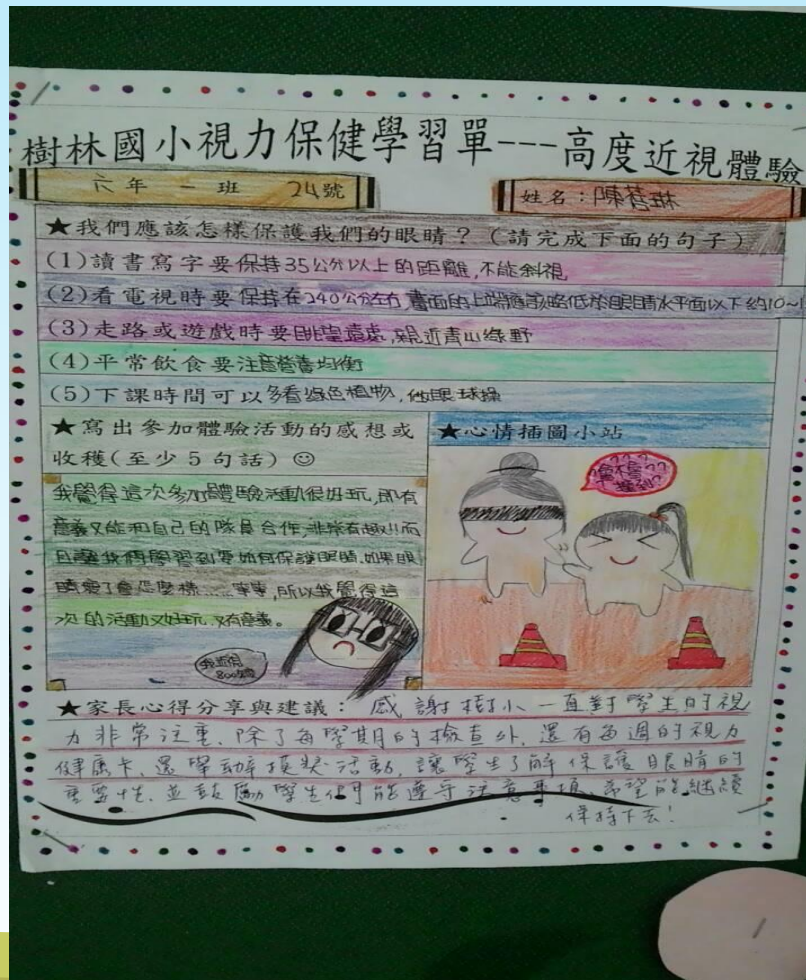 樹林國小視力保健學習單---高度近視體驗
六年一班 24號
姓名：陳菩琳
★我們應該怎樣保護我們的眼睛？（請完成下面的句子）
(1)讀書寫字要保持35公分以上的距離,不能斜視
(2)看電視時要保持在240公分左右,畫面的上端應該略低於眼睛水平面以下約10~1
(3)走路或遊戲時要眺望遠處,親近青山綠野
(4)平常飲食要注意營養均衡
(5)下課時間可以多看綠色植物,做眼球操
★寫出參加體驗活動的感想或
收穫(至少5句話)☺
我覺得這次參加體驗活動很好玩,即有
意義又能和自己的隊員合作,非常有趣!!而
且讓我們學習到要如何保護眼睛.如果眼
睛壞了會怎麼樣......等等,所以我覺得這
次的活動又好玩,又有意義。
我近視
800度
★心情插圖小站
???
會不會??
撞到?
★家長心得分享與建議：感謝樹小一直對學生的視
力非常注重、除了每學期的檢查外、還有每週的視力
健康卡、還舉辦摸獎活動,讓學生了解保護眼睛的
重要性.並鼓勵學生們能遵守注意事項、希望能繼續
保持下去!